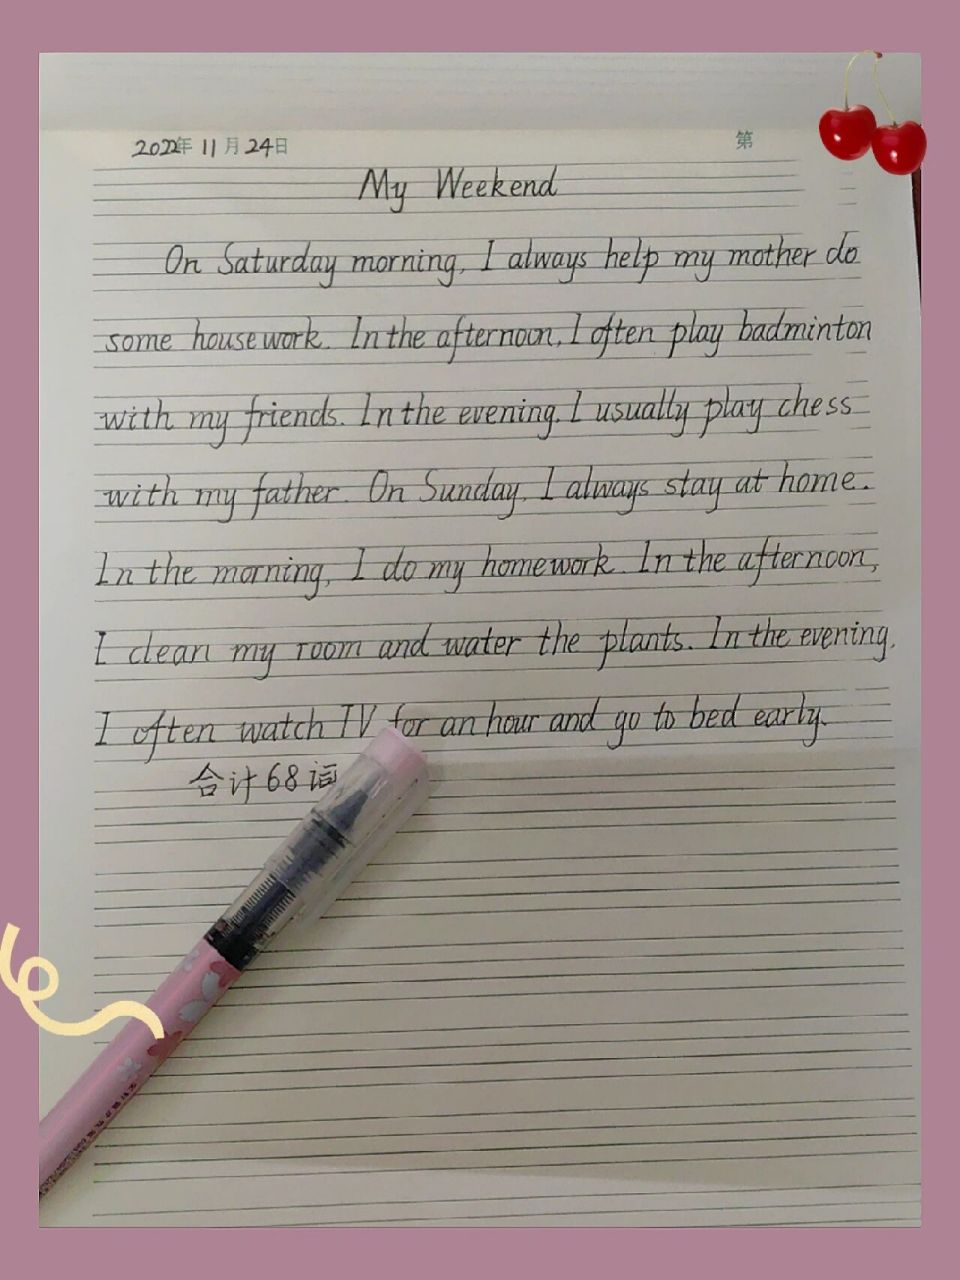 2022年 11 月 24日
第
My Weekend
On Saturday morning, I always help my mother do
some housework. In the afternoon, I often play badminton
with my friends. In the evening, I usually play chess
with my father. On Sunday, I always stay at home.
In the morning, I do my homework. In the afternoon,
I clean my room and water the plants. In the evening,
I often watch TV for an hour and go to bed early.
合计68词